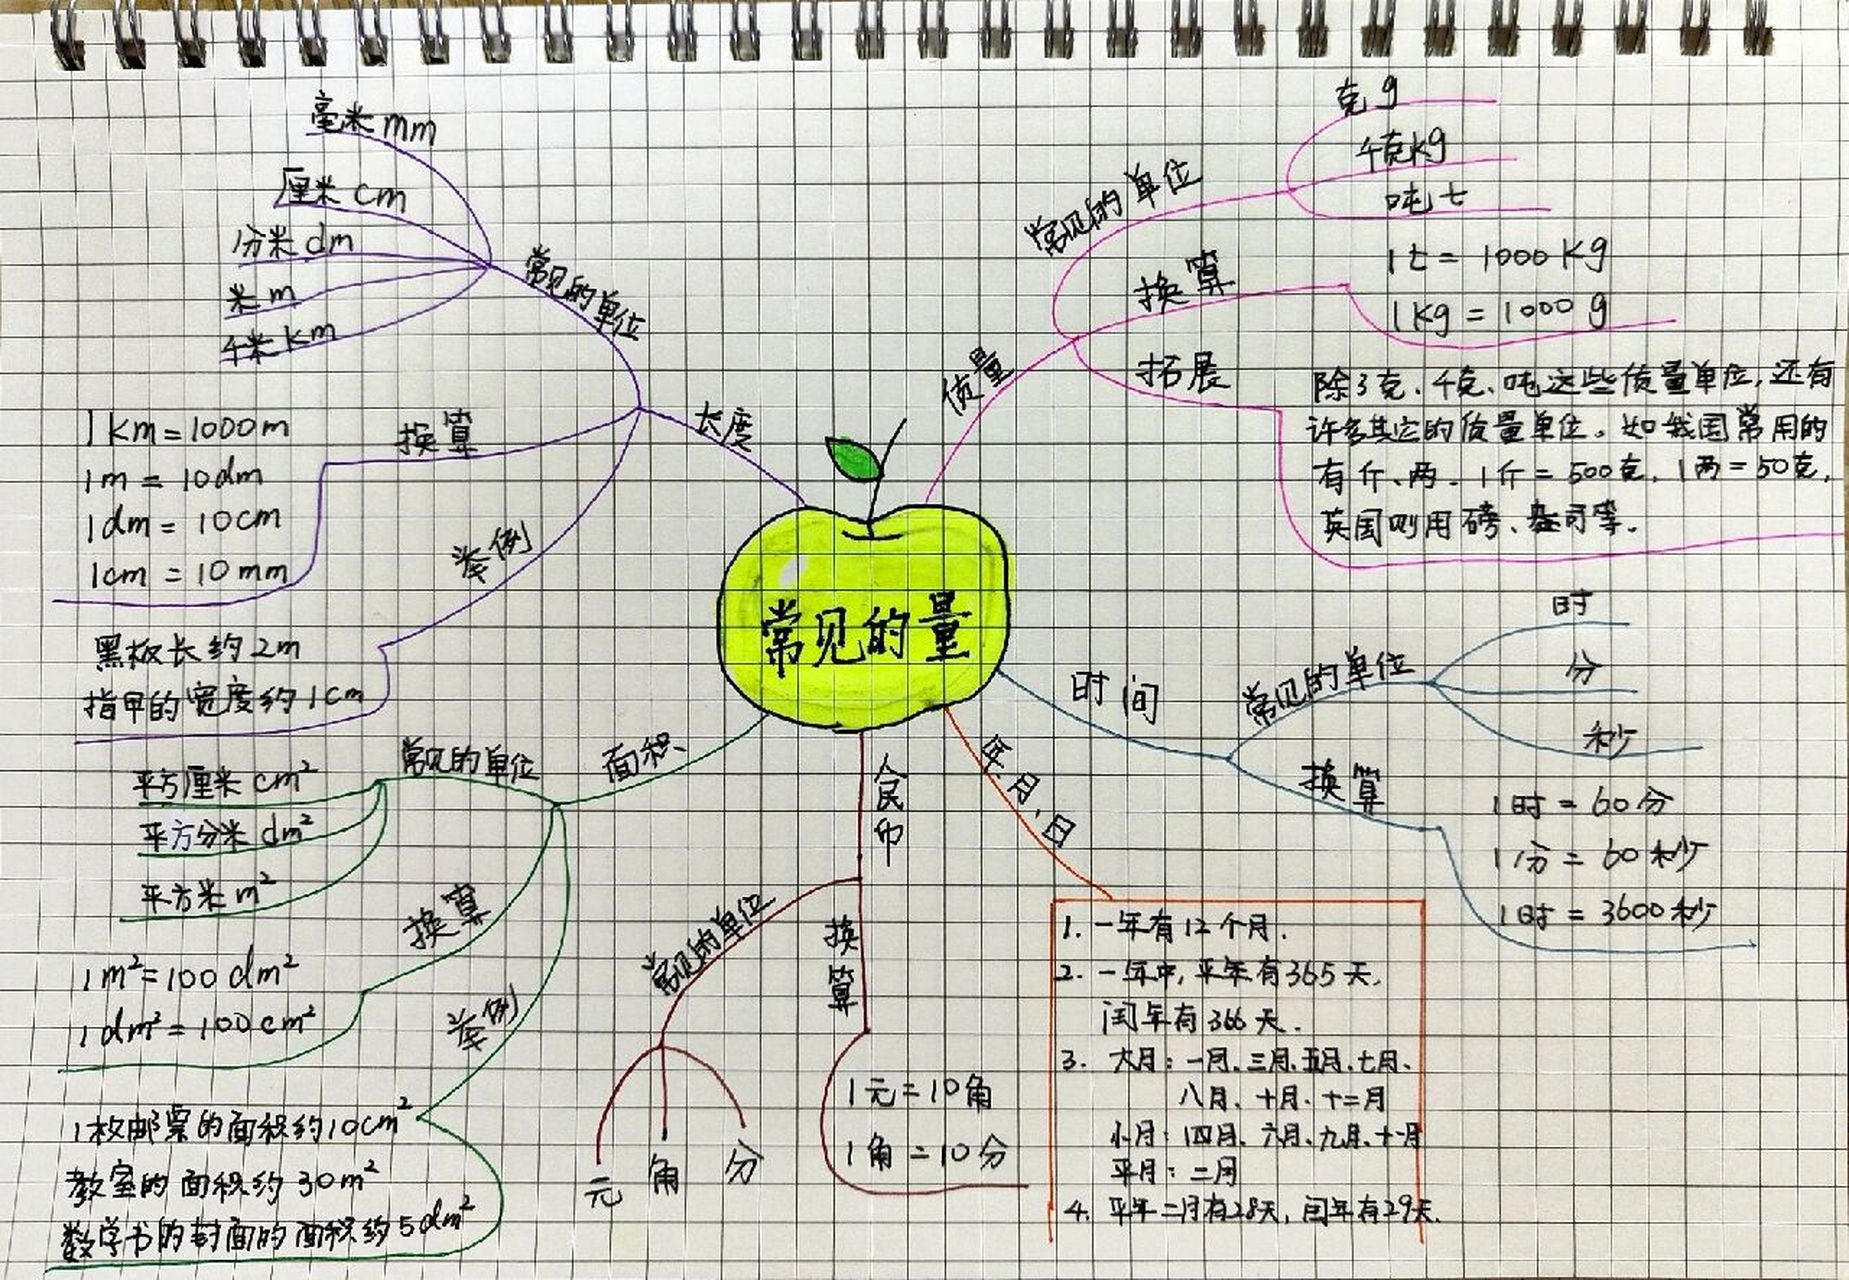 常见的量
长度
常见的单位
毫米 mm
厘米 cm
分米 dm
米 m
千米 km
换算
1km=1000m
1m=10dm
1dm=10cm
1cm=10mm
举例
黑板长约2m
指甲的宽度约1cm
质量
常见的单位
克 g
千克kg
吨 t
换算
1t=1000Kg
1Kg=1000g
拓展
除了克、千克、吨这些质量单位,还有
许多其它的质量单位。如我国常用的
有斤、两。1斤=500克,1两=50克,
英国则用磅、盎司等。
时间
常见的单位
时
分
秒
换算
1时=60分
1分=60秒
1时=3600秒
面积
常见的单位
平方厘米 cm²
平方分米 dm²
平方米 m²
换算
1m²=100dm²
1dm²=100cm²
举例
1枚邮票的面积约10cm²
教室的面积约30m²
数学书的封面的面积约5dm²
币
常见的单位
元
角
分
换算
1元=10角
1角=10分
年、月、日
1. 一年有12个月.
2. 一年中,平年有365天,
闰年有366天.
3. 大月:一月、三月、五月、七月、
八月、十月、十二月
小月:四月、六月、九月、十一月
平月:二月
4. 平年二月有28天,闰年有29天.